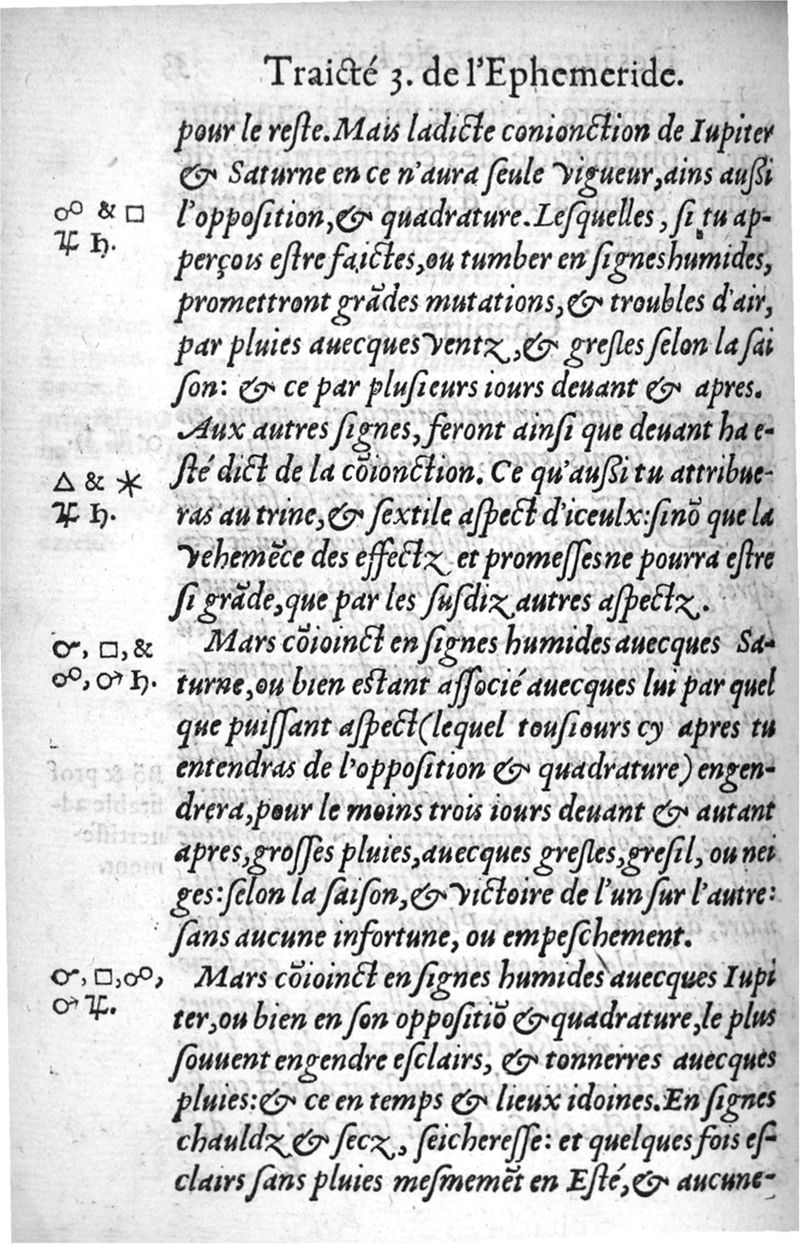 Traicté 3. de l'Ephemeride.
pour le reſte. Mais ladicte conionction de Iupiter
& Saturne en ce n'aura ſeule vigueur, ains auſsi
☍ & □
l'oppoſition, & quadrature. Leſquelles, ſi tu ap-
♃ ♄.
perçois eſtre faictes, ou tumber en ſignes humides,
promettront grãdes mutations, & troubles d'air,
par pluies auecques ventz, & greſles ſelon la ſai
ſon: & ce par pluſieurs iours deuant & apres.
Aux autres ſignes, feront ainſi que deuant ha e-
ſté dict de la cõionction. Ce qu'auſsi tu attribue-
△ & ⚹
♃ ♄.
ras au trine, & ſextile aſpect d'iceulx: ſinõ que la
vehemẽce des effectz et promeſſes ne pourra eſtre
ſi grãde, que par les ſuſdiz autres aſpectz.
☌, □, &
☍, ♂ ♄.
Mars cõioinct en ſignes humides auecques Sa-
turne, ou bien eſtant aſſocié auecques lui par quel
que puiſſant aſpect (lequel touſiours cy apres tu
entendras de l'oppoſition & quadrature) engen-
drera, pour le moins trois iours deuant & autant
apres, groſſes pluies, auecques greſles, greſil, ou nei
ges: ſelon la ſaiſon, & victoire de l'un ſur l'autre:
ſans aucune infortune, ou empeſchement.
☌, □, ☍,
♂ ♃.
Mars cõioinct en ſignes humides auecques Iupi
ter, ou bien en ſon oppoſitiõ & quadrature, le plus
ſouuent engendre eſclairs, & tonnerres auecques
pluies: & ce en temps & lieux idoines. En ſignes
chauldz & ſecz, ſeichereſſe: et quelques fois eſ-
clairs ſans pluies meſmemẽt en Eſté, & aucune-